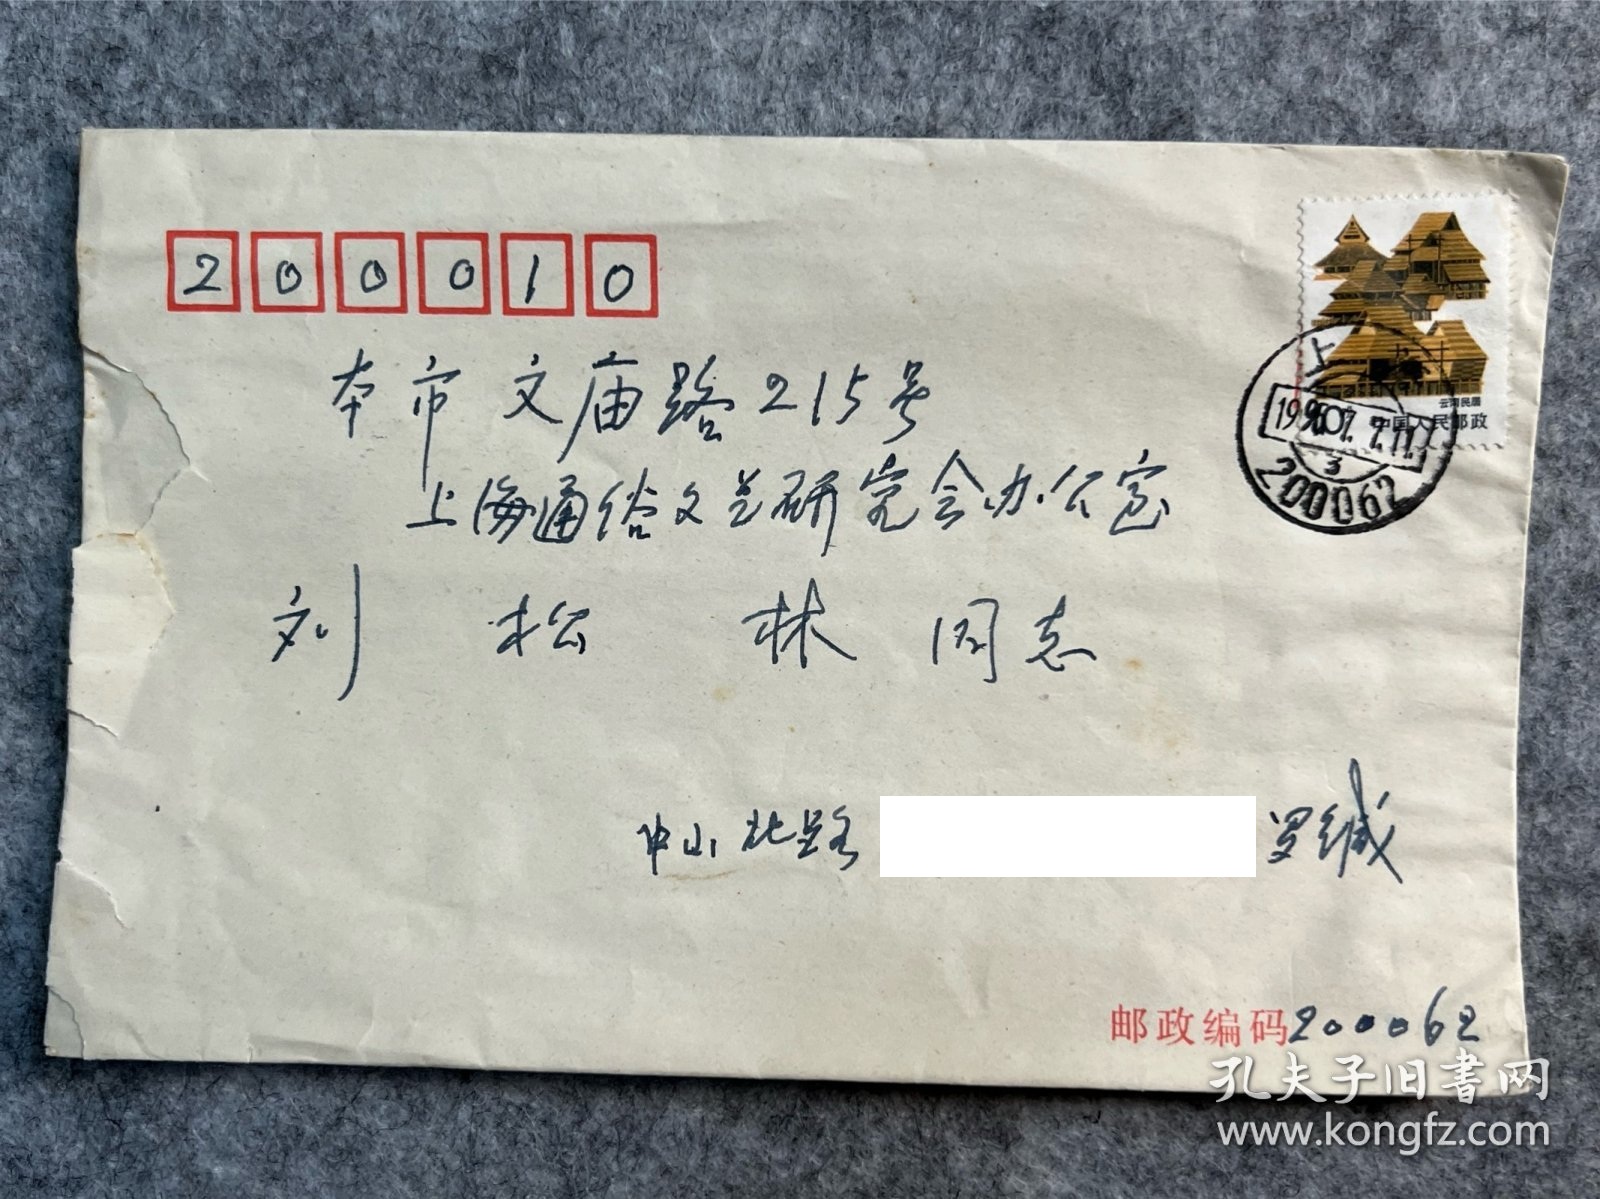 200010
本市文庙路215号
上海通俗文艺研究会办公室
刘松林同志
中山北路 罗缄
邮政编码200062
云南民居
中国人民邮政
上
200062
孔夫子旧书网
www.kongfz.com